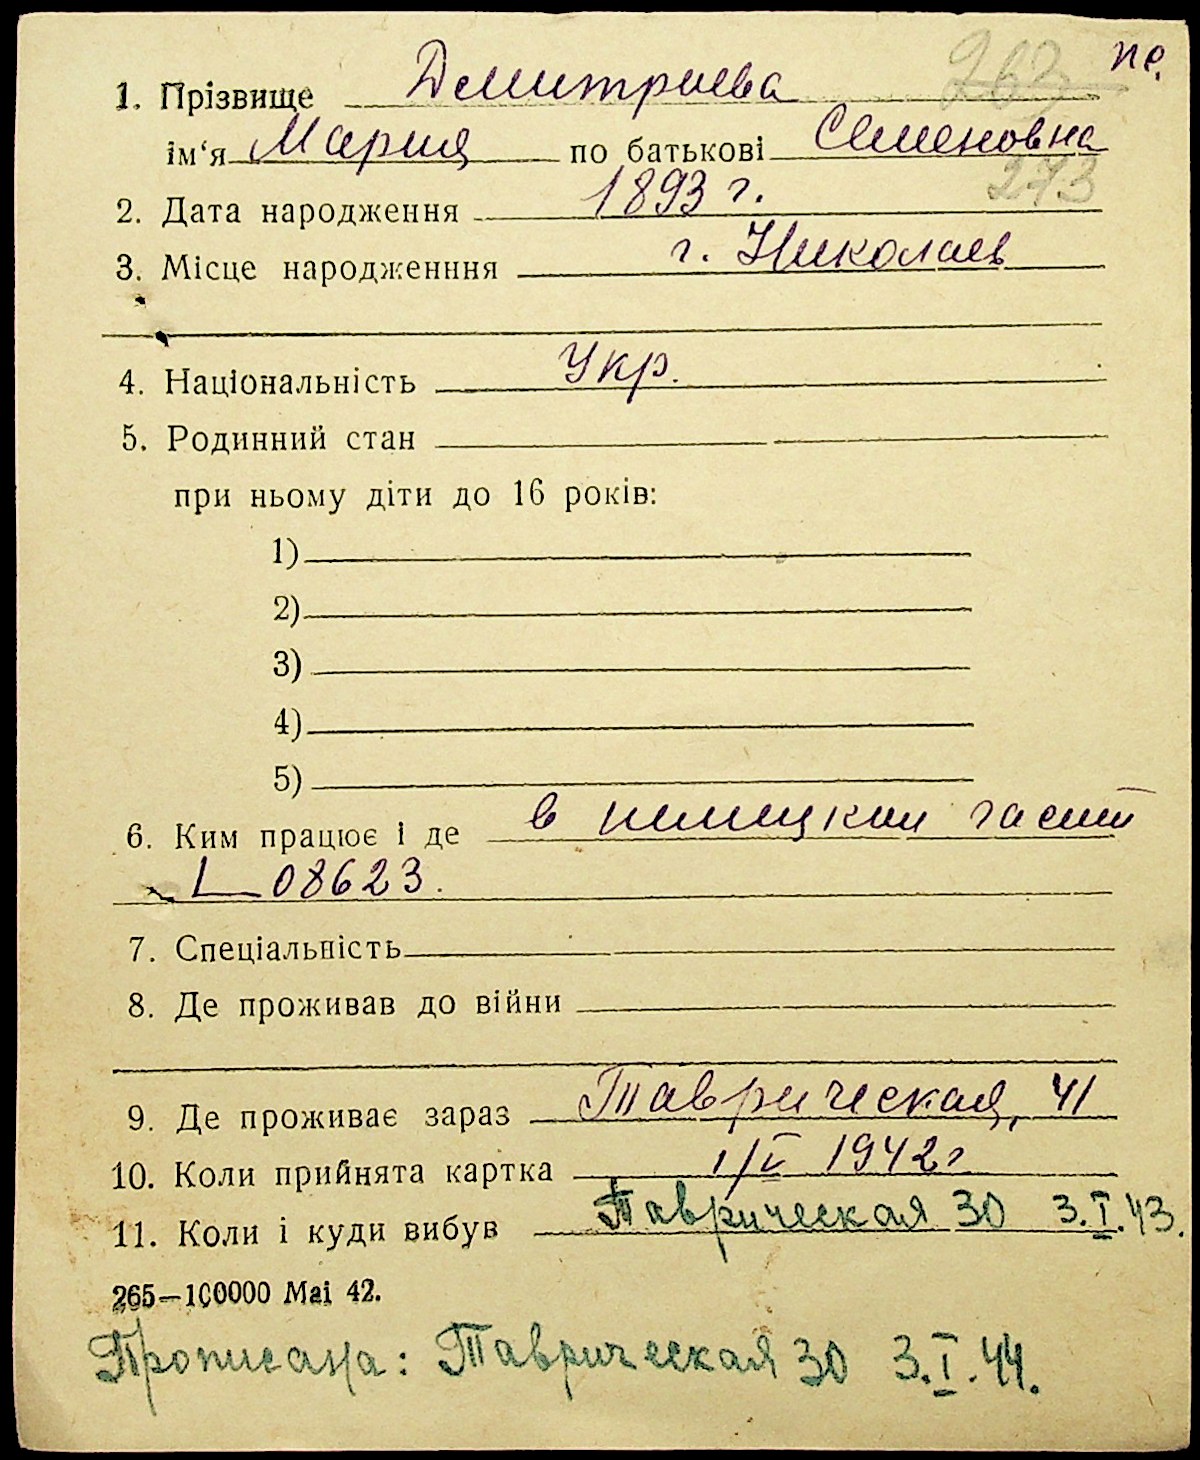 пе.
263
1. Прізвище Дмитриева
ім‘я Мария по батькові Семеновна
273
2. Дата народження 1893 г.
3. Місце народженння г. Николаев
4. Національність Укр.
5. Родинний стан
при ньому діти до 16 років:
1)
2)
3)
4)
5)
6. Ким працює і де в немецкой части
L 08623.
7. Спеціальність
8. Де проживав до війни
9. Де проживає зараз Таврическая, 41
10. Коли прийнята картка 1/V 1942 г
11. Коли і куди вибув Таврическая 30 3.I.43.
265—100000 Mai 42.
Прописана: Таврическая 30 3.I.44.